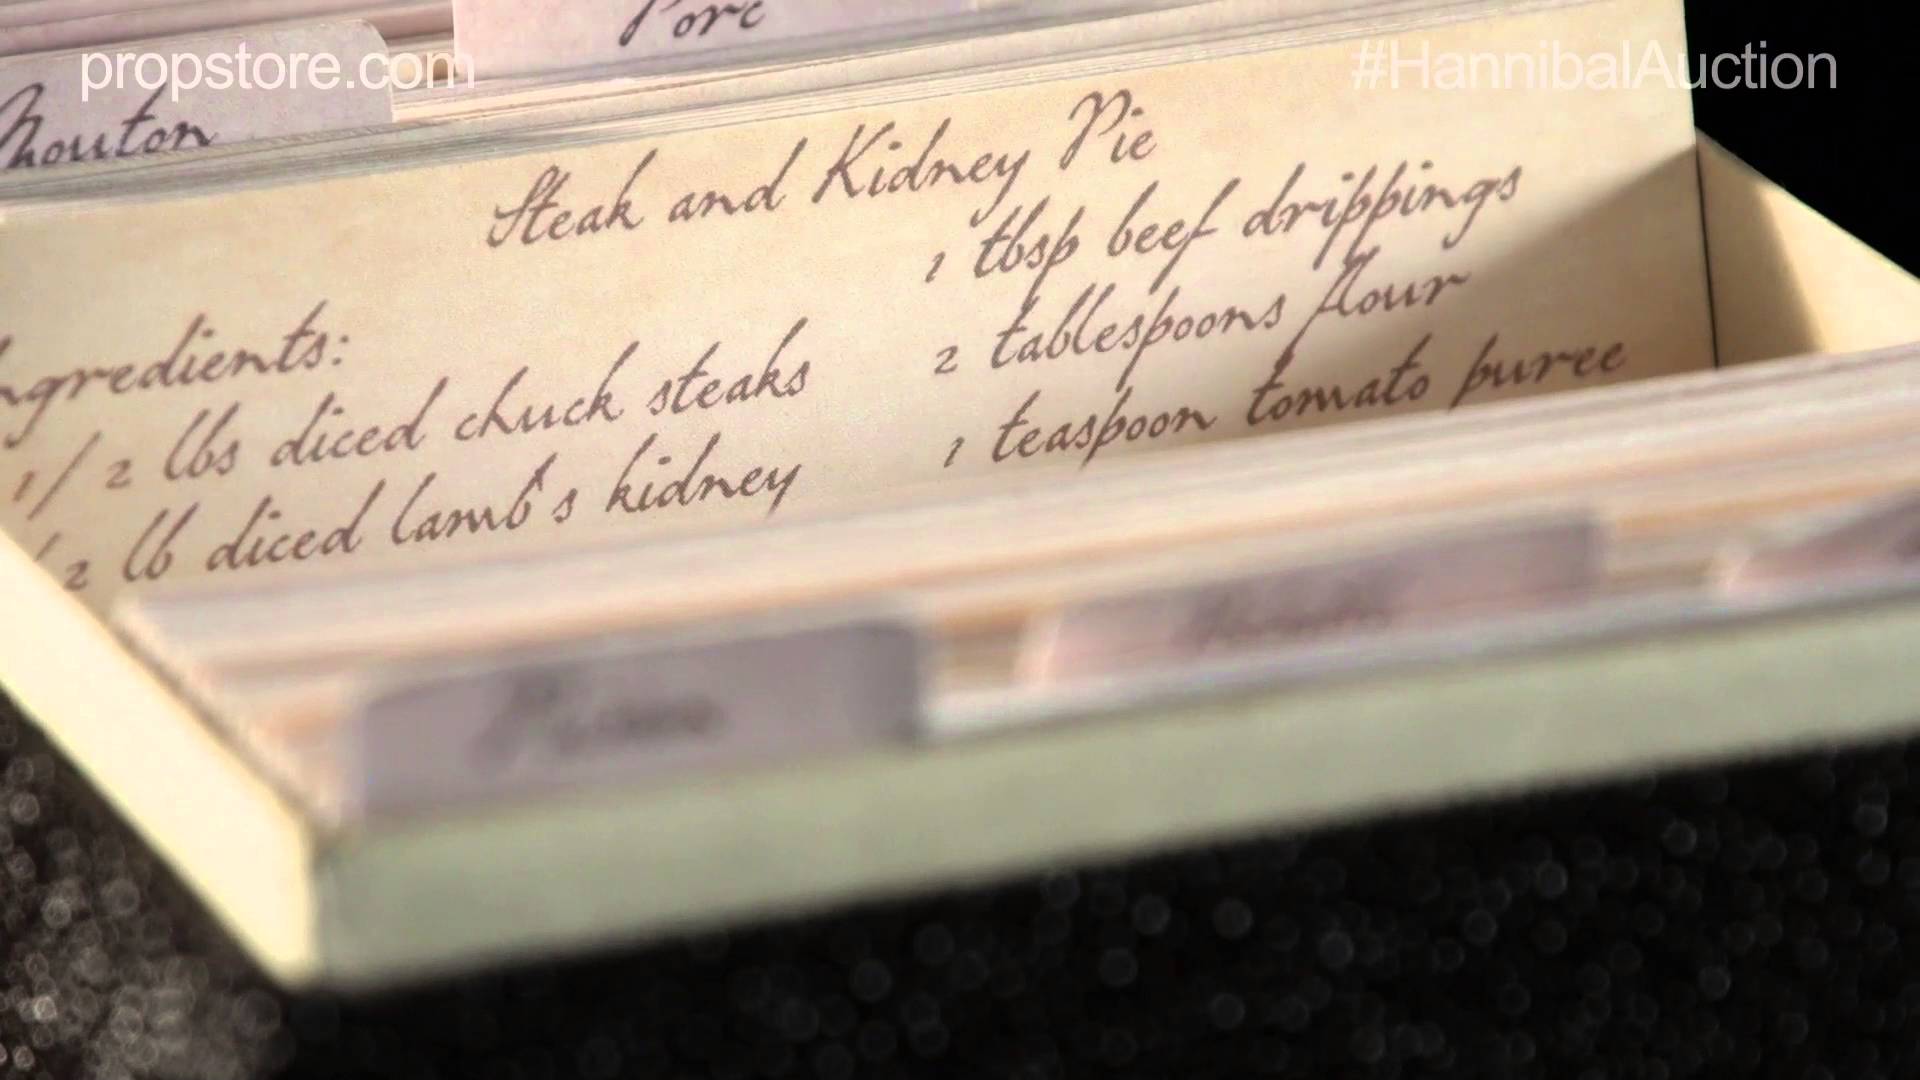 Porc
propstore.com
#HannibalAuction
Mouton
Steak and Kidney Pie
ngredients:
1/2 lbs diced chuck steaks
/2 lb diced lamb's kidney
1 tbsp beef drippings
2 tablespoons flour
1 teaspoon tomato puree